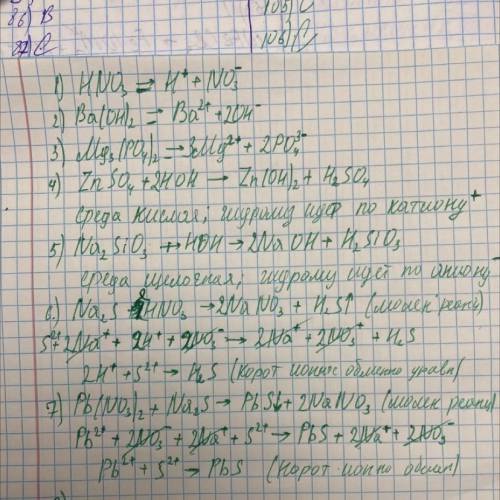 86) B
87) C
105) C
106) C
1) HNO₃ ⇌ H⁺ + NO₃⁻
2) Ba(OH)₂ ⇌ Ba²⁺ + 2OH⁻
3) Mg₃(PO₄)₂ ⇌ 3Mg²⁺ + 2PO₄³⁻
4) ZnSO₄ + 2HOH → Zn(OH)₂ + H₂SO₄
среда кислая; гидролиз идёт по катиону +
5) Na₂SiO₃ + HOH → 2NaOH + H₂SiO₃
среда щелочная; гидролиз идёт по аниону -
6.) Na₂S + 2HNO₃ → 2NaNO₃ + H₂S↑ (молек реакц)
S²⁺ + 2Na⁺ + 2H⁺ + 2NO₃⁻ → 2Na⁺ + 2NO₃⁻ + H₂S
2H⁺ + S²⁺ → H₂S (корот ионно обменно уравн)
7) Pb(NO₃)₂ + Na₂S → PbS↓ + 2NaNO₃ (молек реакц)
Pb²⁺ + 2NO₃⁻ + 2Na⁺ + S²⁺ → PbS + 2Na⁺ + 2NO₃⁻
Pb²⁺ + S²⁺ → PbS (корот ионно обмен)